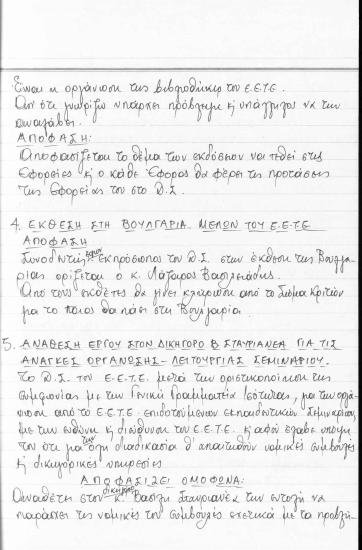 Είναι η οργάνωση της βιβλιοθήκης του Ε.Ε.Τ.Ε.
Απ' ότι γνωρίζω υπάρχει πρόβλημα η υπάλληλος να την
αναλάβει.
ΑΠΟΦΑΣΗ:
Αποφασίζεται το θέμα των εκδόσεων να τεθεί στις
Εφορείες κ' ο κάθε Έφορος θα φέρει τις προτάσεις
της Εφορείας του στο Δ.Σ.
4. ΕΚΘΕΣΗ ΣΤΗ ΒΟΥΛΓΑΡΙΑ ΜΕΛΩΝ ΤΟΥ Ε.Ε.Τ.Ε
ΑΠΟΦΑΣΗ
Συνοδευτής εκπρόσωπος του Δ.Σ. στην έκθεση της Βουλγα-
ρίας ορίζεται ο κ. Λάζαρος Βασιλειάδης.
Από τους εκθέτες θα γίνει κλήρωση από το Σώμα Κριτών
για το ποιος θα πάει στη Βουλγαρία.
5. ΑΝΑΘΕΣΗ ΕΡΓΟΥ ΣΤΟΝ ΔΙΚΗΓΟΡΟ Β. ΣΤΑΥΡΙΑΝΕΑ ΓΙΑ ΤΙΣ
ΑΝΑΓΚΕΣ ΟΡΓΑΝΩΣΗΣ - ΛΕΙΤΟΥΡΓΙΑΣ ΣΕΜΙΝΑΡΙΟΥ.
Το Δ.Σ. του Ε.Ε.Τ.Ε. μετά την οριστικοποίηση της
συμφωνίας με την Γενική Γραμματεία Ισότητας, για την οργά-
νωση από το Ε.Ε.Τ.Ε. επιδοτούμενου εκπαιδευτικού Σεμιναρίου,
με την ευθύνη κ' διεύθυνση του Ε.Ε.Τ.Ε. κ' αφού έλαβε υπόψη
του ότι για την όλη διαδικασία θ' απαιτηθούν νομικές συμβουλές
κ' δικηγορικές υπηρεσίες
ΑΠΟΦΑΣΙΖΕΙ ΟΜΟΦΩΝΑ:
Αναθέτει στον δικηγόρο κ. Βασίλη Σταυριανέα την εντολή να
παράσχει τις νομικές του συμβουλές σχετικά με τα προβλή-